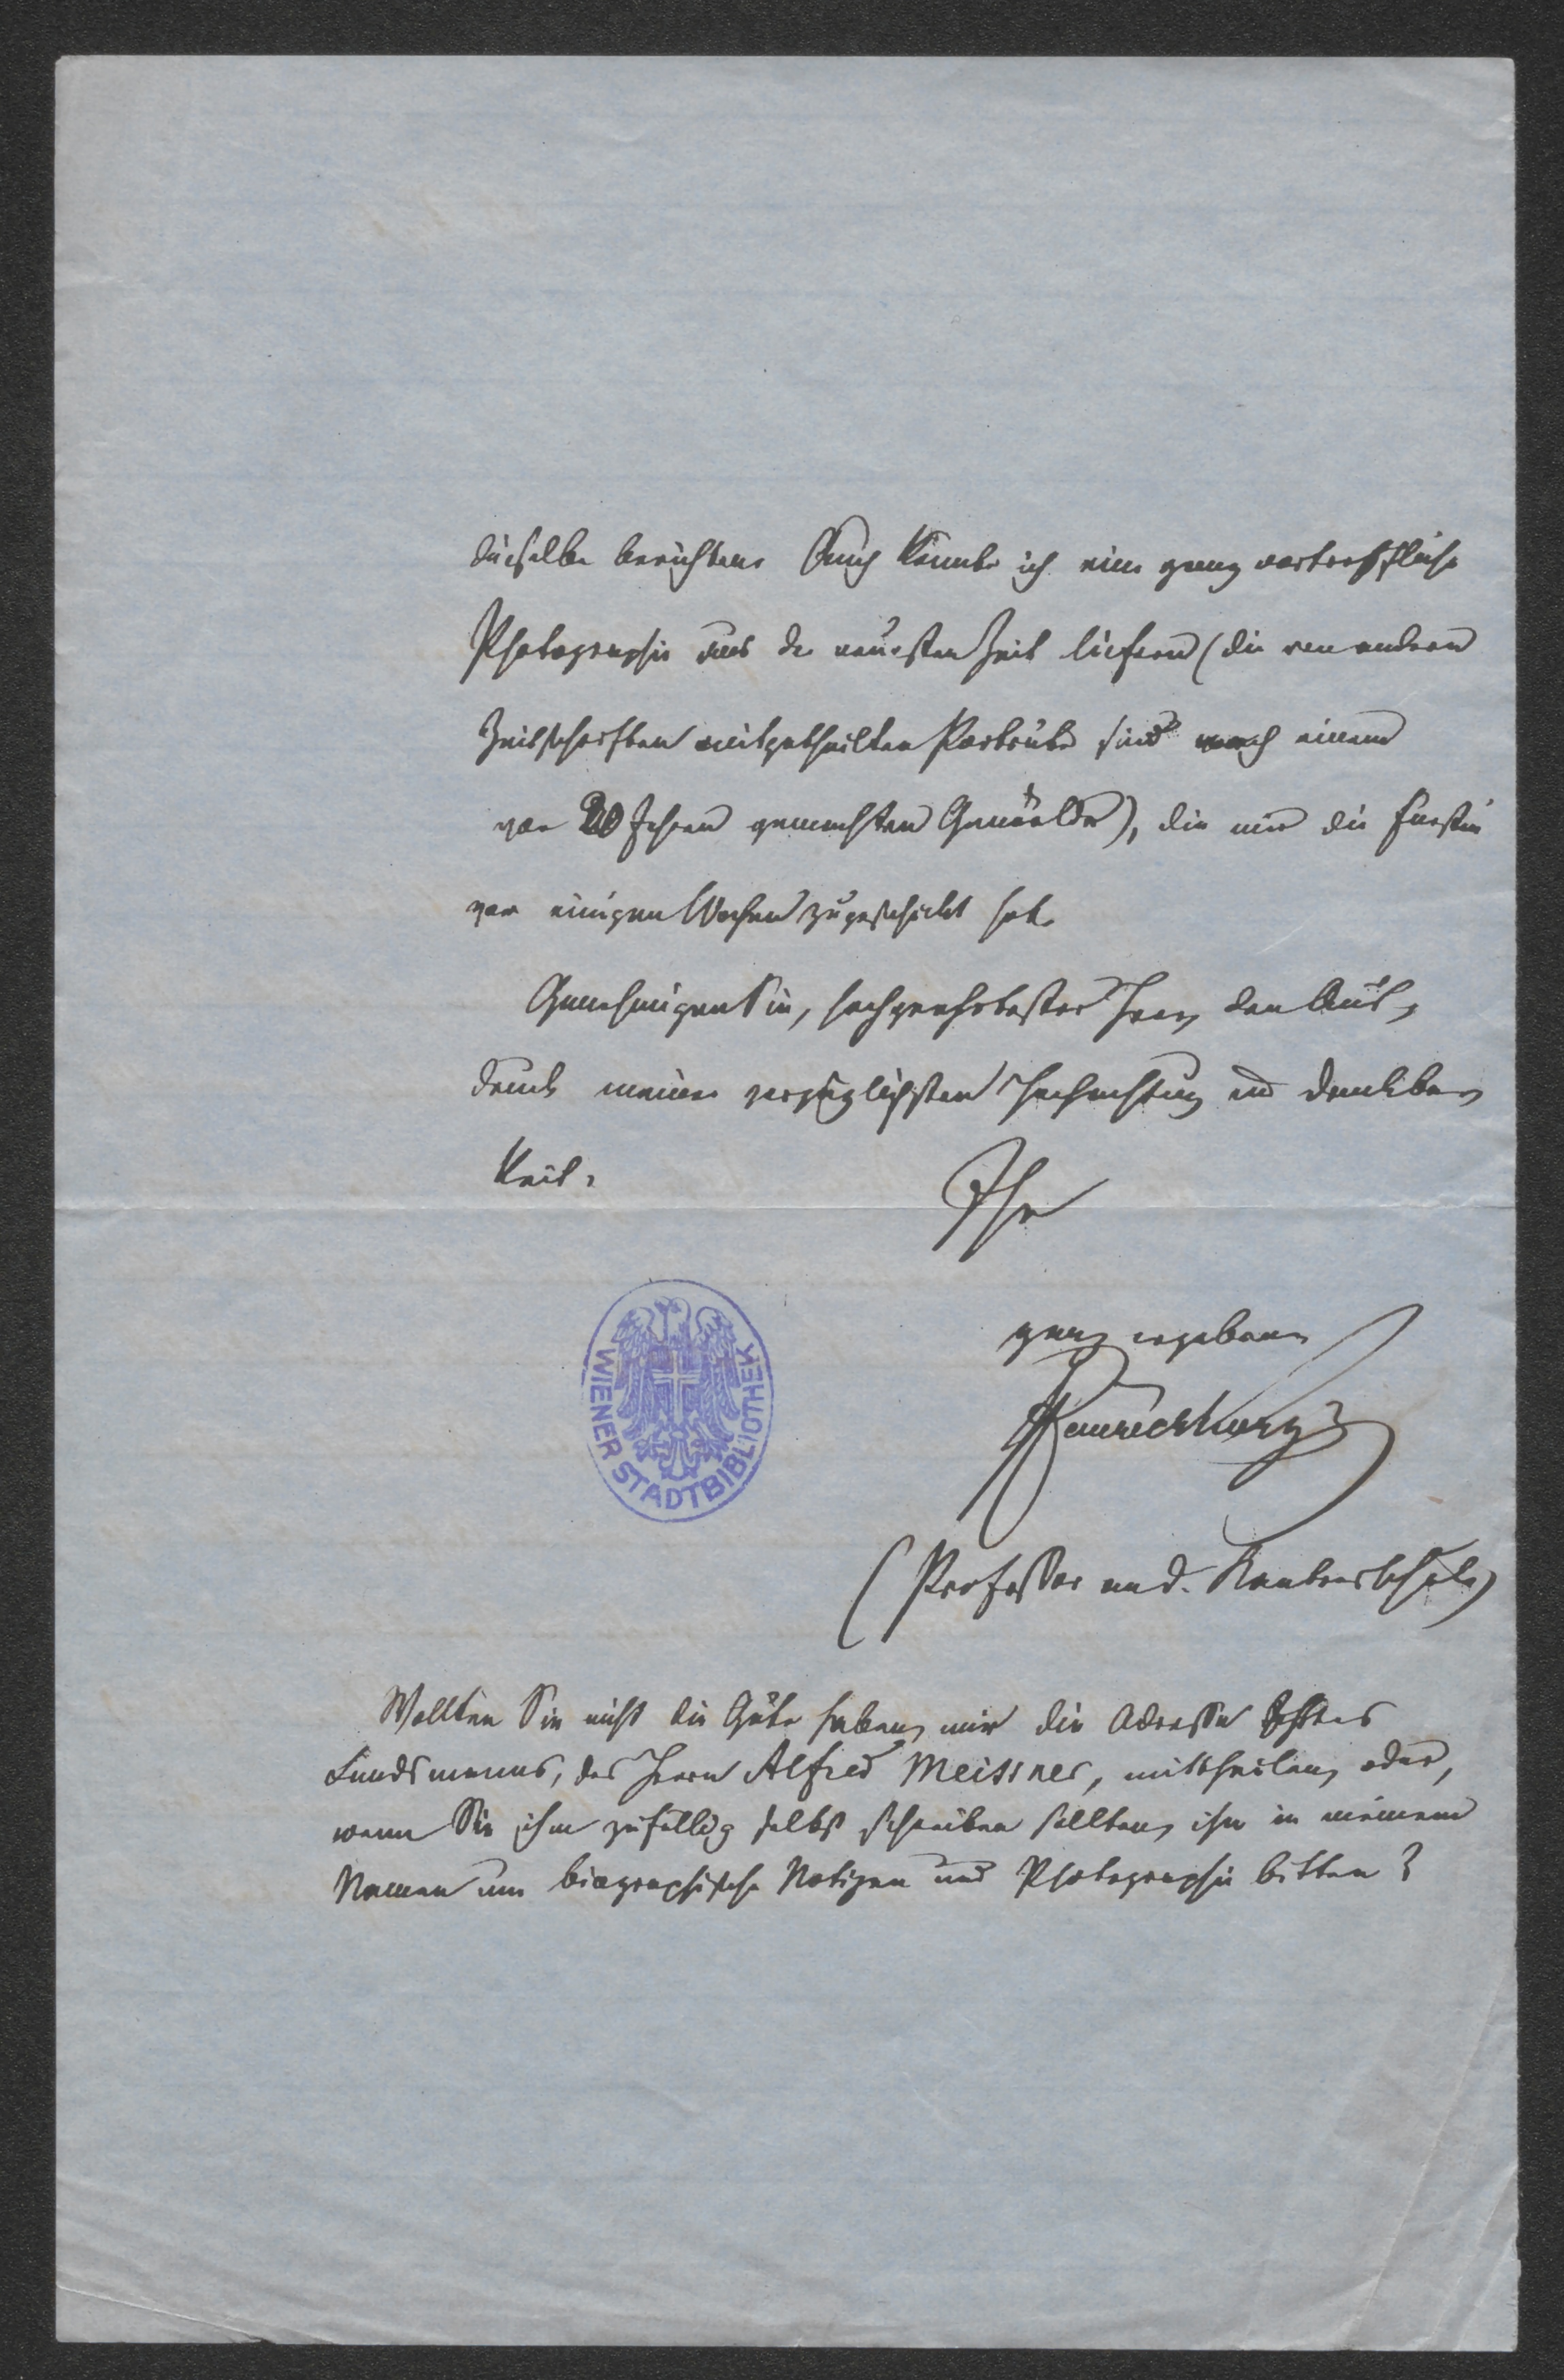 dieselbe berichten. Auch könnte ich eine ganz vortreffliche
Photographie aus der neuesten Zeit liefern (die von andern
Zeitschriften mitgetheilten Portraits sind nach einem
vor 20 Jahren gemachten Gemälde), die mir die Fürstin
vor einigen Wochen zugeschickt hat.
Genehmigen Sie, hochgeehrtester Herr, den Aus-
druck meiner vorzüglichsten Hochachtung und Dankbar-
keit.
Ihr
ganz ergebener
Heinrich Kurz
(Professor an d. Kantonsschule)
WIENER STADTBIBLIOTHEK
Wollten Sie nicht die Güte haben, mir die Adresse Ihres
Landsmanns, des Herrn Alfred Meissner, mittheilen, oder,
wenn Sie ihm zufällig selbst schreiben sollten, ihn in meinem
Namen um biographische Notizen und Photographie bitten?